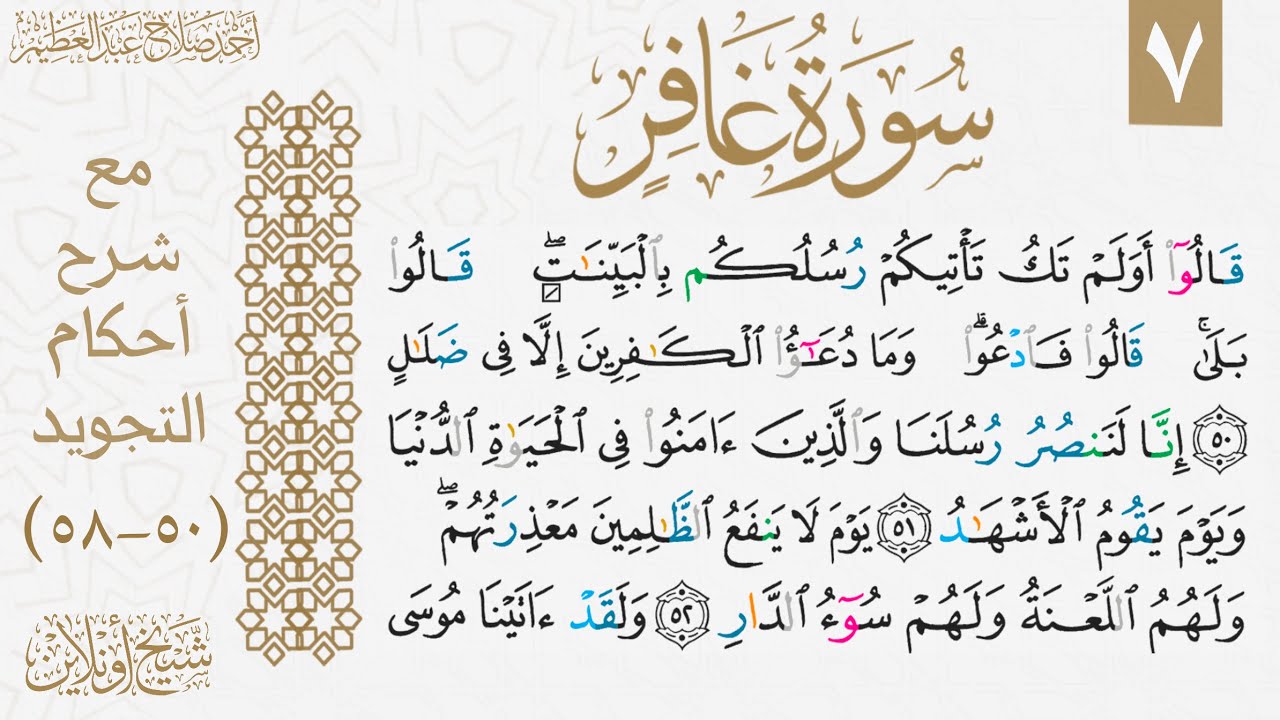 ٧
سُورَةُ غَافِرٍ
أحمد صلاح عبد العظيم
مع
شرح
أحكام
التجويد
(٥٠-٥٨)
شيخ أونلاين
قَالُوٓا۟ أَوَلَمْ تَكُ تَأْتِيكُمْ رُسُلُكُم بِٱلْبَيِّنَـٰتِ ۖ قَالُوا۟
بَلَىٰ ۚ قَالُوا۟ فَٱدْعُوا۟ ۗ وَمَا دُعَـٰٓؤُا۟ ٱلْكَـٰفِرِينَ إِلَّا فِى ضَلَـٰلٍ
٥٠ إِنَّا لَنَنصُرُ رُسُلَنَا وَٱلَّذِينَ ءَامَنُوا۟ فِى ٱلْحَيَوٰةِ ٱلدُّنْيَا
وَيَوْمَ يَقُومُ ٱلْأَشْهَـٰدُ ٥١ يَوْمَ لَا يَنفَعُ ٱلظَّـٰلِمِينَ مَعْذِرَتُهُمْ ۖ
وَلَهُمُ ٱللَّعْنَةُ وَلَهُمْ سُوٓءُ ٱلدَّارِ ٥٢ وَلَقَدْ ءَاتَيْنَا مُوسَى